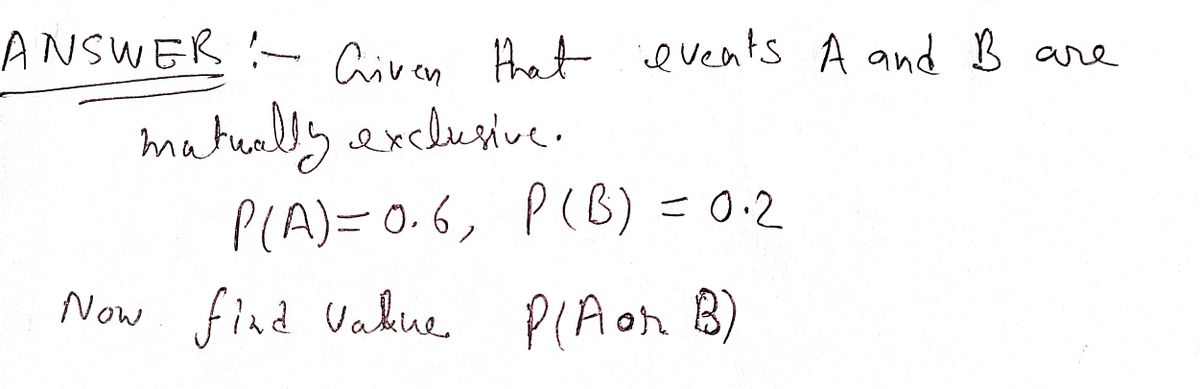 ANSWER :- Given that events A and B are
mutually exclusive.
P(A)=0.6, P(B) = 0.2
Now find value P(A or B)